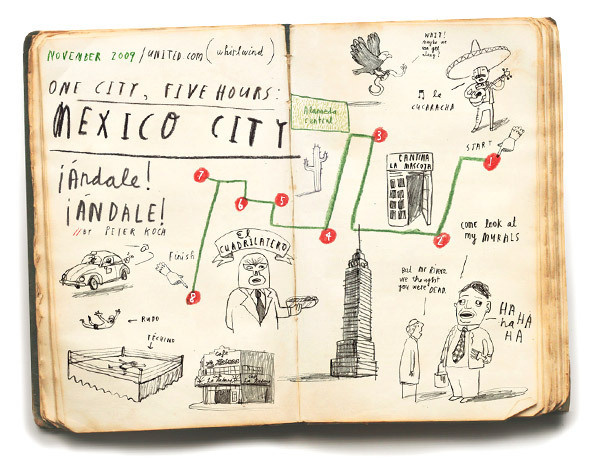 NOVEMBER 2009 / UNITED.COM (whirlwind)
ONE CITY, FIVE HOURS:
MEXICO CITY
¡Ándale!
¡ÁNDALE!
// BY PETER KOCH
WAIT!
maybe we
Alameda
central
♫ la
CUCARACHA
START
1
2
3
4
5
6
7
8
CANTINA
LA MASCOTA
EL
CUADRILATERO
Finish
← RUDO
Café
come look at
my MURALS
But Mr RIVERA
we thought
you were DEAD.
HA
HA
ha HA
HA